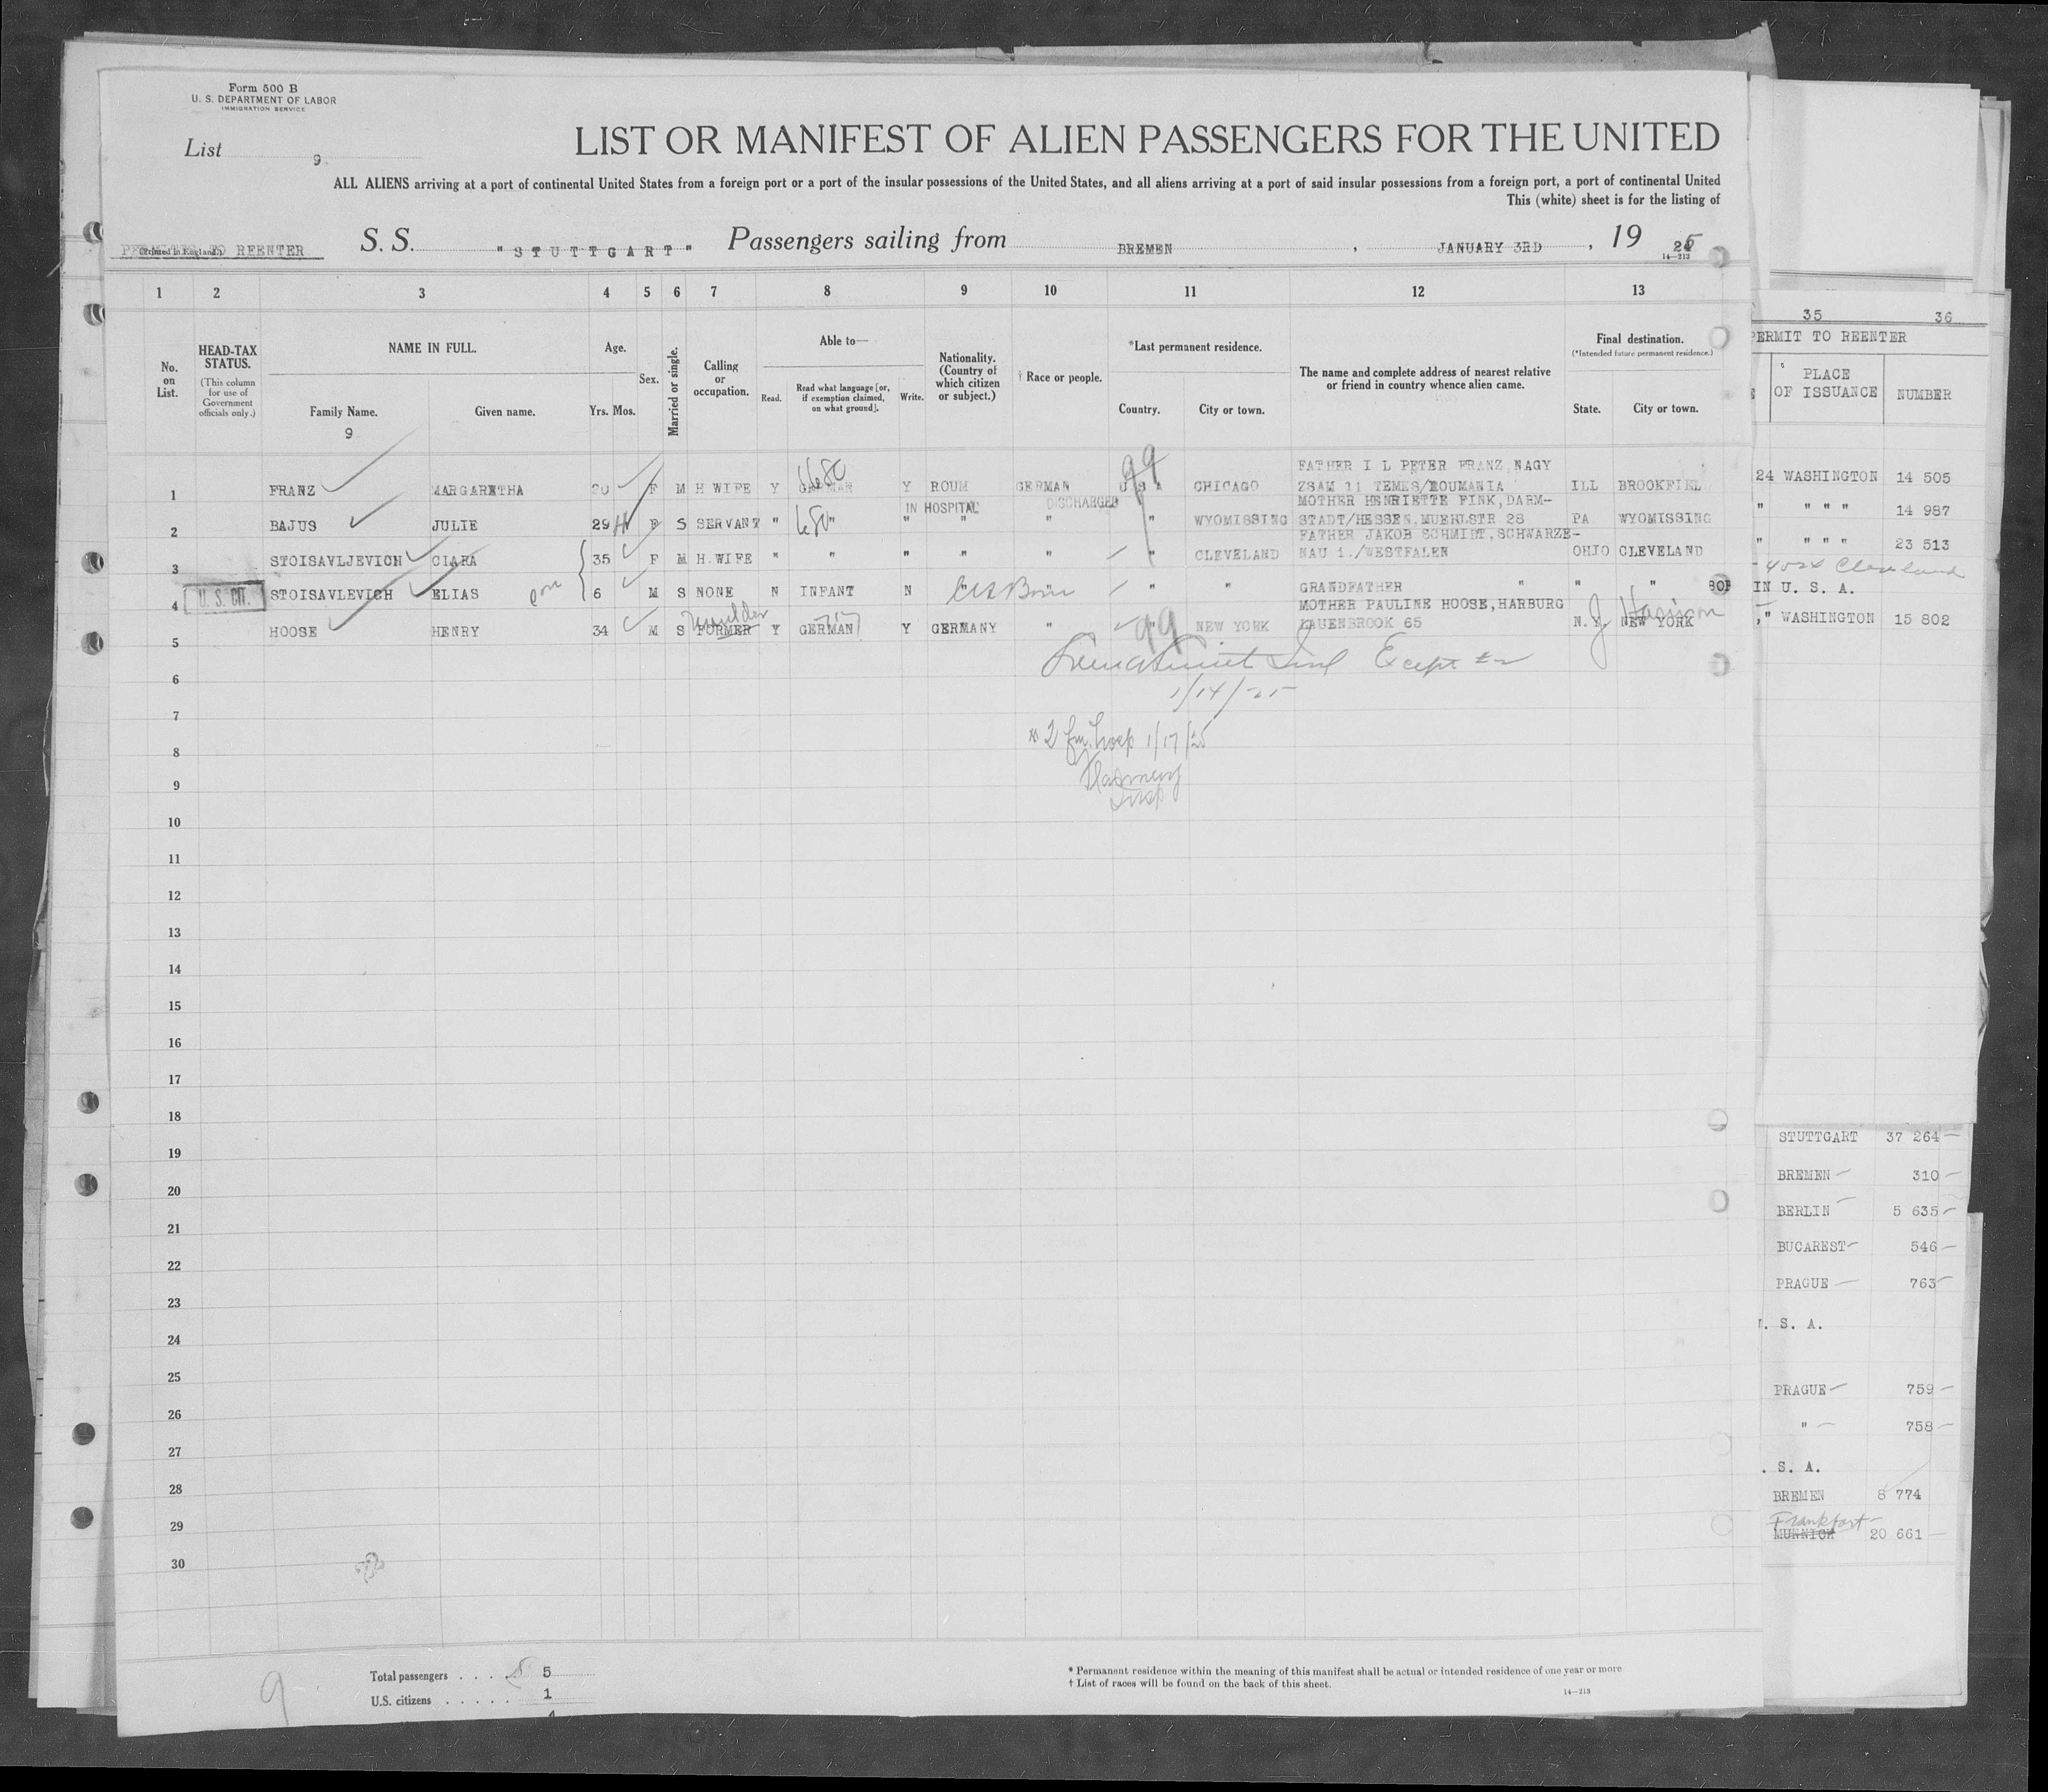 Form 500 B
U. S. DEPARTMENT OF LABOR
IMMIGRATION SERVICE
List 9
LIST OR MANIFEST OF ALIEN PASSENGERS FOR THE UNITED
ALL ALIENS arriving at a port of continental United States from a foreign port or a port of the insular possessions of the United States, and all aliens arriving at a port of said insular possessions from a foreign port, a port of continental United
This (white) sheet is for the listing of
PERMITES TO REENTER
(Printed in England.)
S. S. "STUTTGART" Passengers sailing from BREMEN, JANUARY 3RD, 1925
14—213
1 2 3 4 5 6 7 8 9 10 11 12 13 35 36
No. on List.
HEAD-TAX STATUS.
(This column for use of Government officials only.)
NAME IN FULL.
Family Name.
9
Given name.
Age.
Yrs. Mos.
Sex.
Married or single.
Calling or occupation.
Able to—
Read.
Read what language [or, if exemption claimed, on what ground].
Write.
Nationality. (Country of which citizen or subject.)
† Race or people.
*Last permanent residence.
Country.
City or town.
The name and complete address of nearest relative or friend in country whence alien came.
Final destination.
(*Intended future permanent residence.)
State.
City or town.
PERMIT TO REENTER
PLACE OF ISSUANCE
NUMBER
99
FATHER I L PETER FRANZ, NAGY
1 FRANZ MARGARETHA F M H WIFE Y GERMAN Y ROUM GERMAN U S A CHICAGO ZSAM 11 TEMES/ROUMANIA ILL BROOKFIEL 24 WASHINGTON 14 505
IN HOSPITAL DISCHARGED MOTHER HENRIETTE FINK, DARM-
2 BAJUS JULIE 29 F S SERVANT " " " " " " WYOMISSING STADT/HESSEN, MUEHLSTR 28 PA WYOMISSING " " " " 14 987
FATHER JAKOB SCHMIDT, SCHWARZE-
3 STOISAVLJEVICH CIARA 35 F M H. WIFE " " " " " " CLEVELAND NAU 1./WESTFALEN OHIO CLEVELAND " " " " 23 513
Cleveland
4 U. S. CIT. STOISAVLEVICH ELIAS 6 M S NONE N INFANT N " US Born " " " GRANDFATHER " " " BOR IN U. S. A.
MOTHER PAULINE HOOSE, HARBURG
5 HOOSE HENRY 34 M S FORMER Y GERMAN Y GERMANY " " NEW YORK LAUENBROOK 65 N.Y. NEW YORK " WASHINGTON 15 802
99
Harrison
Except #2
6
1/14/25
7
#2 hosp 1/17/25
8
9
Insp
10
11
12
13
14
15
16
17
18
19
20
21
22
23
24
25
26
27
28
29
30
STUTTGART 37 264
BREMEN 310
BERLIN 5 635
BUCAREST 546
PRAGUE 763
. S. A.
PRAGUE 759
" 758
. S. A.
BREMEN 8 774
Frankfort
MUNNICH 20 661
9
Total passengers . . . . 5
U.S. citizens . . . . . . 1
* Permanent residence within the meaning of this manifest shall be actual or intended residence of one year or more
† List of races will be found on the back of this sheet.
14—213